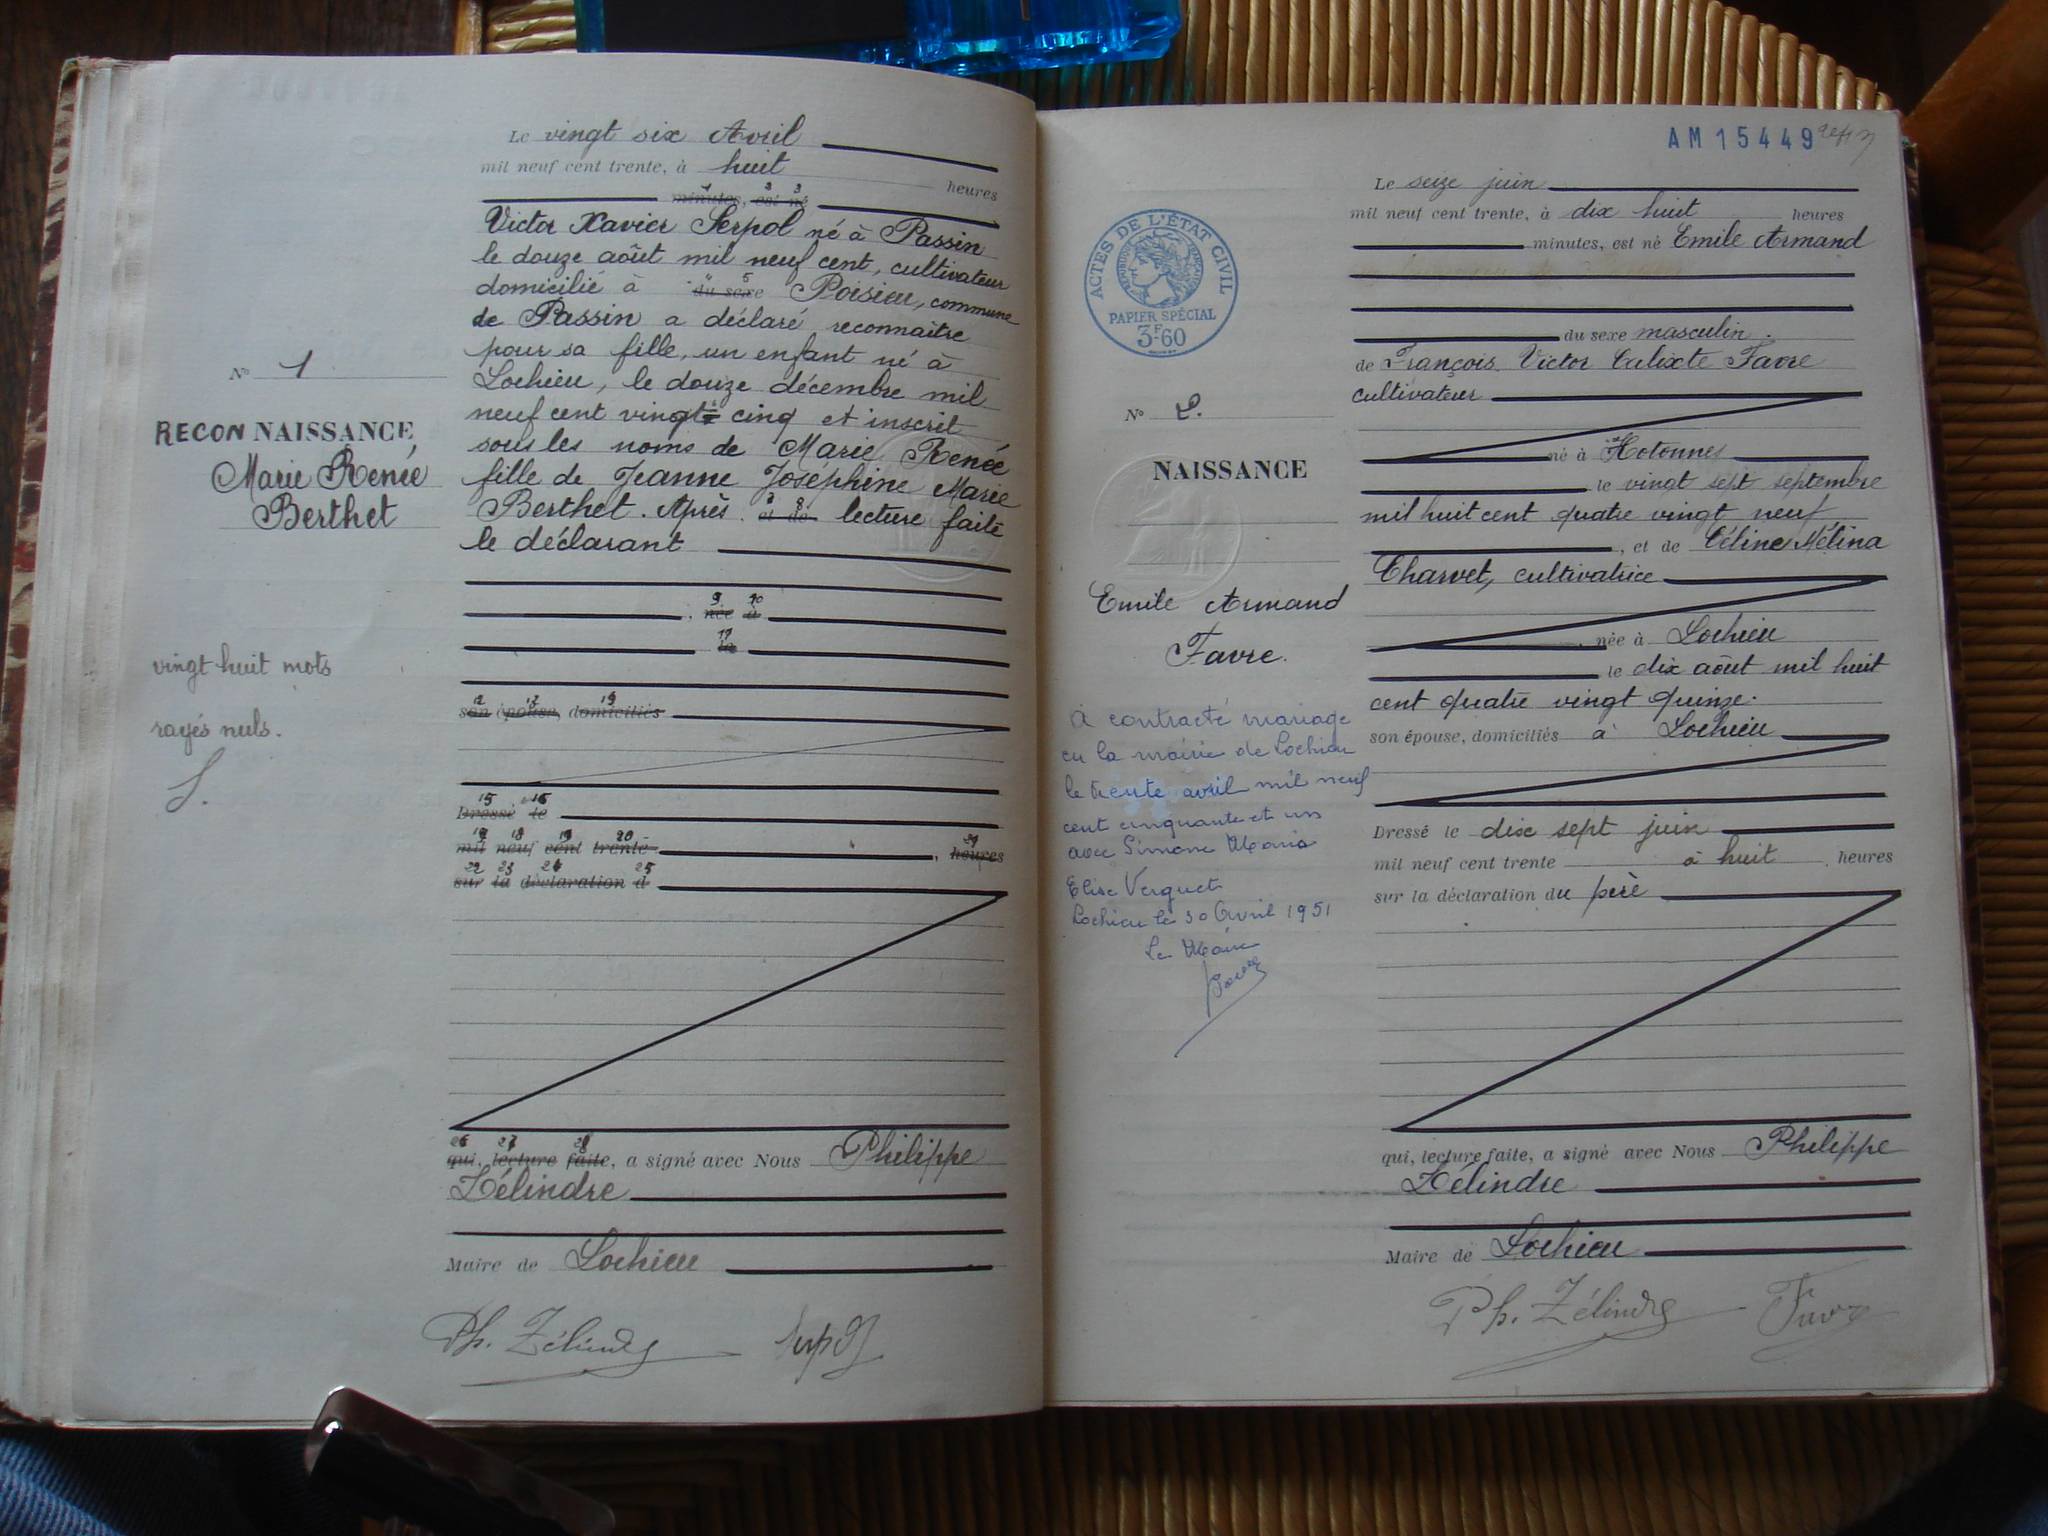 Le vingt six Avril
mil neuf cent trente, à huit heures
minutes, est né
Victor Xavier Serpol né à Passin
le douze août mil neuf cent, cultivateur
domicilié à du sexe Poisieu, commune
de Passin a déclaré reconnaître
pour sa fille, un enfant né à
Lochieu, le douze décembre mil
neuf cent vingt cinq et inscrit
sous les noms de Marie Renée
fille de Jeanne Joséphine Marie
Berthet. Après et de lecture faite
le déclarant
, née à
le
son épouse, domiciliés
Dressé le
mil neuf cent trente , heures
sur la déclaration d
qui, lecture faite, a signé avec Nous Philippe
Zélindre
Maire de Lochieu
Ph. Zélindre Serpol
N° 1
RECONNAISSANCE
Marie Renée
Berthet
vingt huit mots
rayés nuls.
S.
AM15449
ACTES DE L'ÉTAT CIVIL
RÉPUBLIQUE FRANÇAISE
PAPIER SPÉCIAL
3F.60
N° 2.
NAISSANCE
Emile Armand
Favre.
A contracté mariage
en la mairie de Lochieu
le trente avril mil neuf
cent cinquante et un
avec Simone Maria
Elise Verguet
Lochieu le 30 Avril 1951
Le Maire
Favre
Le seize juin
mil neuf cent trente, à dix huit heures
minutes, est né Emile Armand
du sexe masculin.
de François Victor Calixte Favre
cultivateur
né à Hotonnes
le vingt sept septembre
mil huit cent quatre vingt neuf
, et de Céline Mélina
Charvet, cultivatrice
, née à Lochieu
le dix août mil huit
cent quatre vingt quinze.
son épouse, domiciliés à Lochieu
Dressé le dix sept juin
mil neuf cent trente à huit heures
sur la déclaration du père
qui, lecture faite, a signé avec Nous Philippe
Zélindre
Maire de Lochieu
Ph. Zélindre Favre